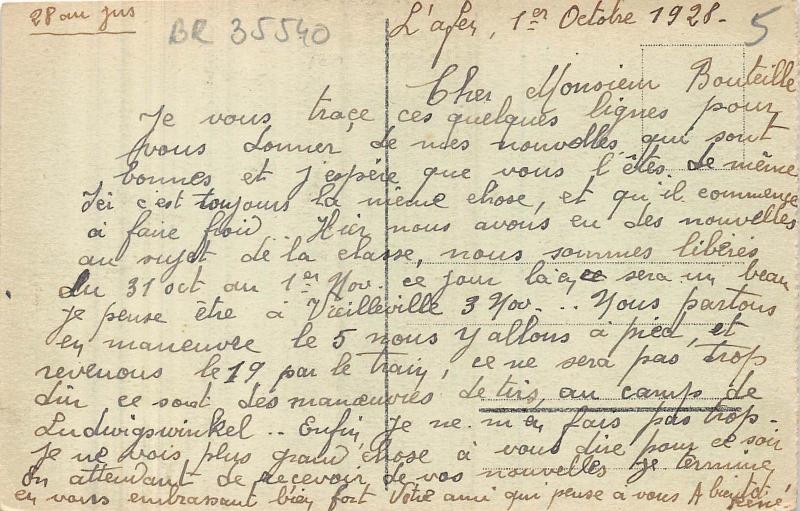 28 au jus
BR 35540
5
L'afen, 1er Octobre 1928.
Cher Monsieur Bouteille
Je vous trace ces quelques lignes pour
vous donner de mes nouvelles qui sont
bonnes et j'espère que vous l'êtes de même
Ici c'est toujours la même chose, et qu'il commence
a faire froid... Hier nous avons eu des nouvelles
au sujet de la classe, nous sommes libérés
du 31 oct au 1er Nov. ce jour là ce sera un beau
je pense être à Vieilleville 3 Nov... Nous partons
en maneuvre le 5 nous y allons à pied, et
revenons le 19 par le train, ce ne sera pas trop
dur ce sont des manœuvres de tirs, au camp de
Ludwigswinkel.. Enfin, je ne m'en fais pas trop-
Je ne vois plus grand chose à vous dire pour ce soir
en attendant de recevoir de vos nouvelles je termine
en vous embrassant bien fort Votre ami qui pense a vous A bientôt
René-